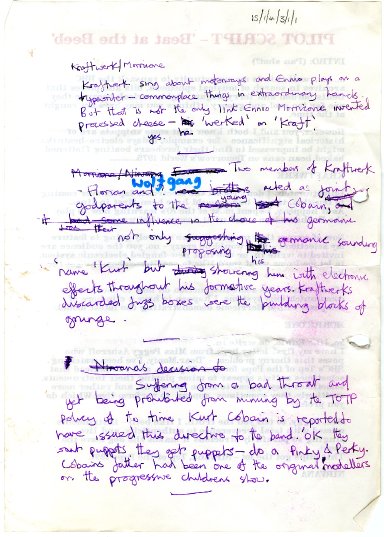 15/1/2/3/1/1
PILOT SCRIPT - 'Beat at the Beeb'
Kraftwerk/Morricone
Kraftwerk sing about motorways and Ennio plays on a
typewriter – commonplace things in extraordinary hands.
But that is not the only link Ennio Morricone invented
processed cheese – he 'werked' on 'Kraft'.
yes. he
Morricone/Nirvana Two members of Kraftwerk
- Florian and Wolfgang acted as joint
godparents to the young Cobain,
it had some influence in the choice of his germanic
their
not only suggesting he germanic sounding
proposing his
name 'Kurt' but showering him with electronic
effects throughout his formative years. Kraftwerks
discarded fuzz boxes were the building blocks of
grunge.
Nirvana's decision to
Suffering from a bad throat and
yet being prohibited from miming by the TOTP
policy of t' time, Kurt Cobain is reported to
have issued this directive to the band. 'OK they
want puppets they get puppets – do a Pinky & Perky.
Cobains father had been one of the original modellers
on the progressive childrens show.